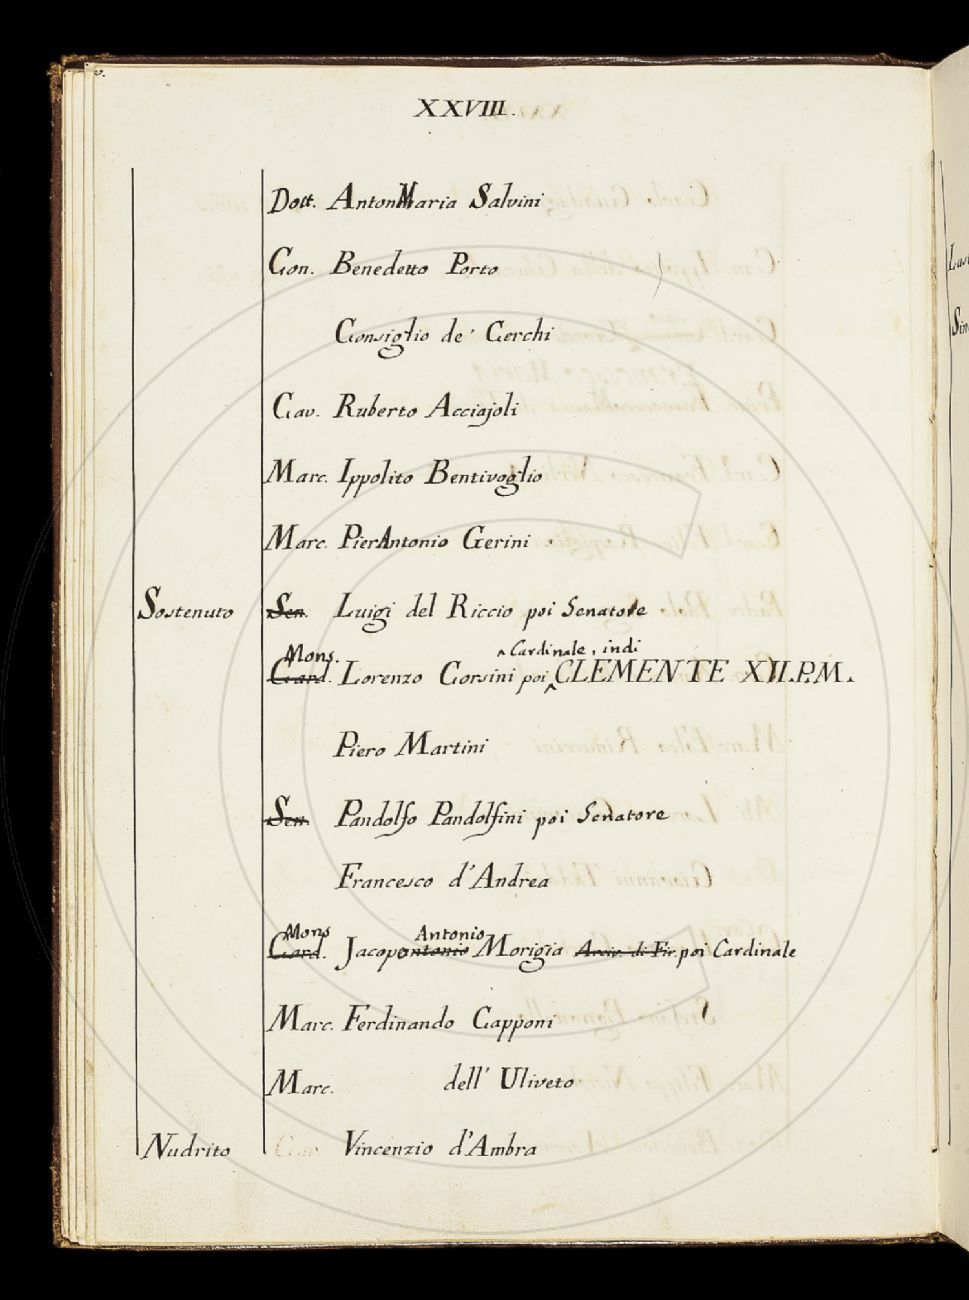 XXVIII.
Dott. AntonMaria Salvini
Con. Benedetto Porto
Consiglio de' Cerchi
Cav. Ruberto Acciajoli
Marc. Ippolito Bentivoglio
Marc. PierAntonio Gerini
Sostenuto Sen. Luigi del Riccio poi Senatore
Mons. Cardinale, indi
Card. Lorenzo Corsini poi CLEMENTE XII.P.M.
Piero Martini
Sen. Pandolfo Pandolfini poi Senatore
Francesco d'Andrea
Mons Antonio
Card. Jacopoantonio Morigia Arciv. di Fir. poi Cardinale
Marc. Ferdinando Capponi
Marc. dell' Uliveto
Nudrito Cav. Vincenzio d'Ambra